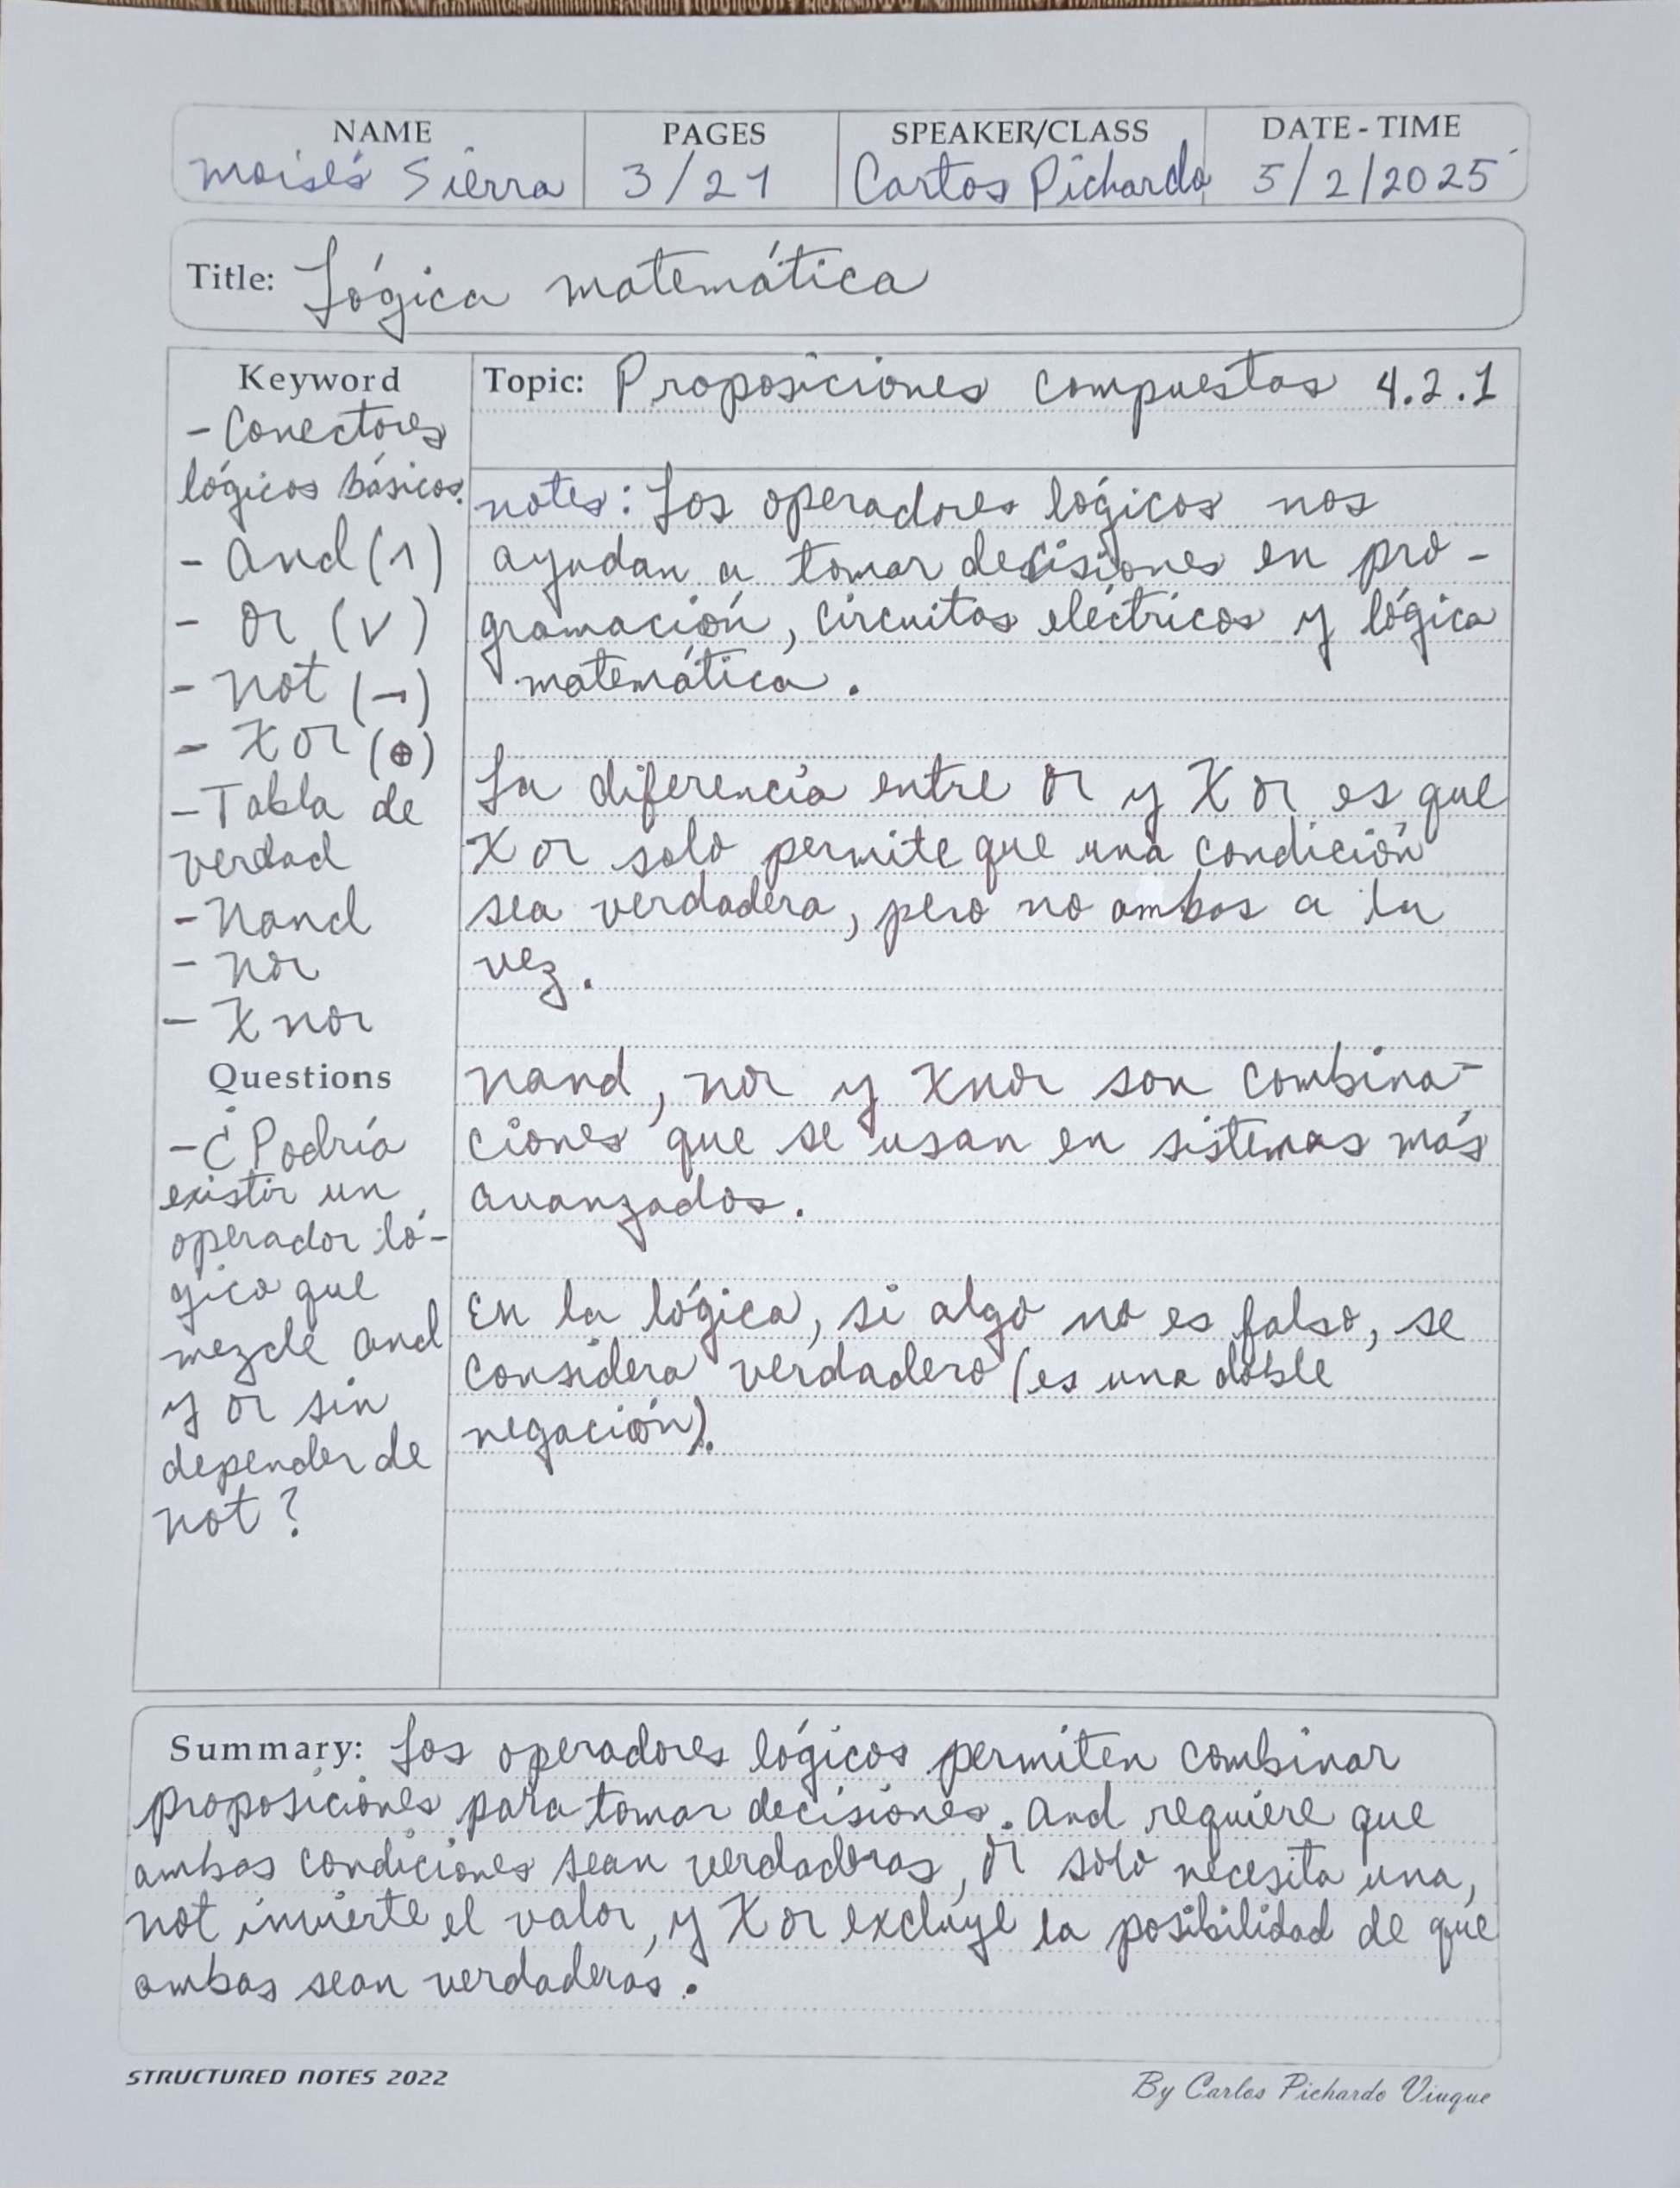 NAME PAGES SPEAKER/CLASS DATE - TIME
Moisés Sierra 3/21 Carlos Pichardo 5/2/2025
Title: Lógica matemática
Keyword
- Conectores
lógicos básicos.
- And (∧)
- Or (∨)
- Not (¬)
- Xor (⊕)
- Tabla de
verdad
- Nand
- Nor
- Xnor
Questions
- ¿Podría
existir un
operador ló-
gico que
mezcle And
y Or sin
depender de
Not?
Topic: Proposiciones compuestas 4.2.1
notes: Los operadores lógicos nos
ayudan a tomar decisiones en pro-
gramación, circuitos eléctricos y lógica
matemática.
La diferencia entre Or y Xor es que
Xor solo permite que una condición
sea verdadera, pero no ambas a la
vez.
Nand, Nor y Xnor son combina-
ciones que se usan en sistemas más
avanzados.
En la lógica, si algo no es falso, se
considera verdadero (es una doble
negación).
Summary: Los operadores lógicos permiten combinar
proposiciones para tomar decisiones. And requiere que
ambas condiciones sean verdaderas, Or solo necesita una,
Not invierte el valor, y Xor excluye la posibilidad de que
ambas sean verdaderas.
STRUCTURED NOTES 2022
By Carlos Pichardo Viuque